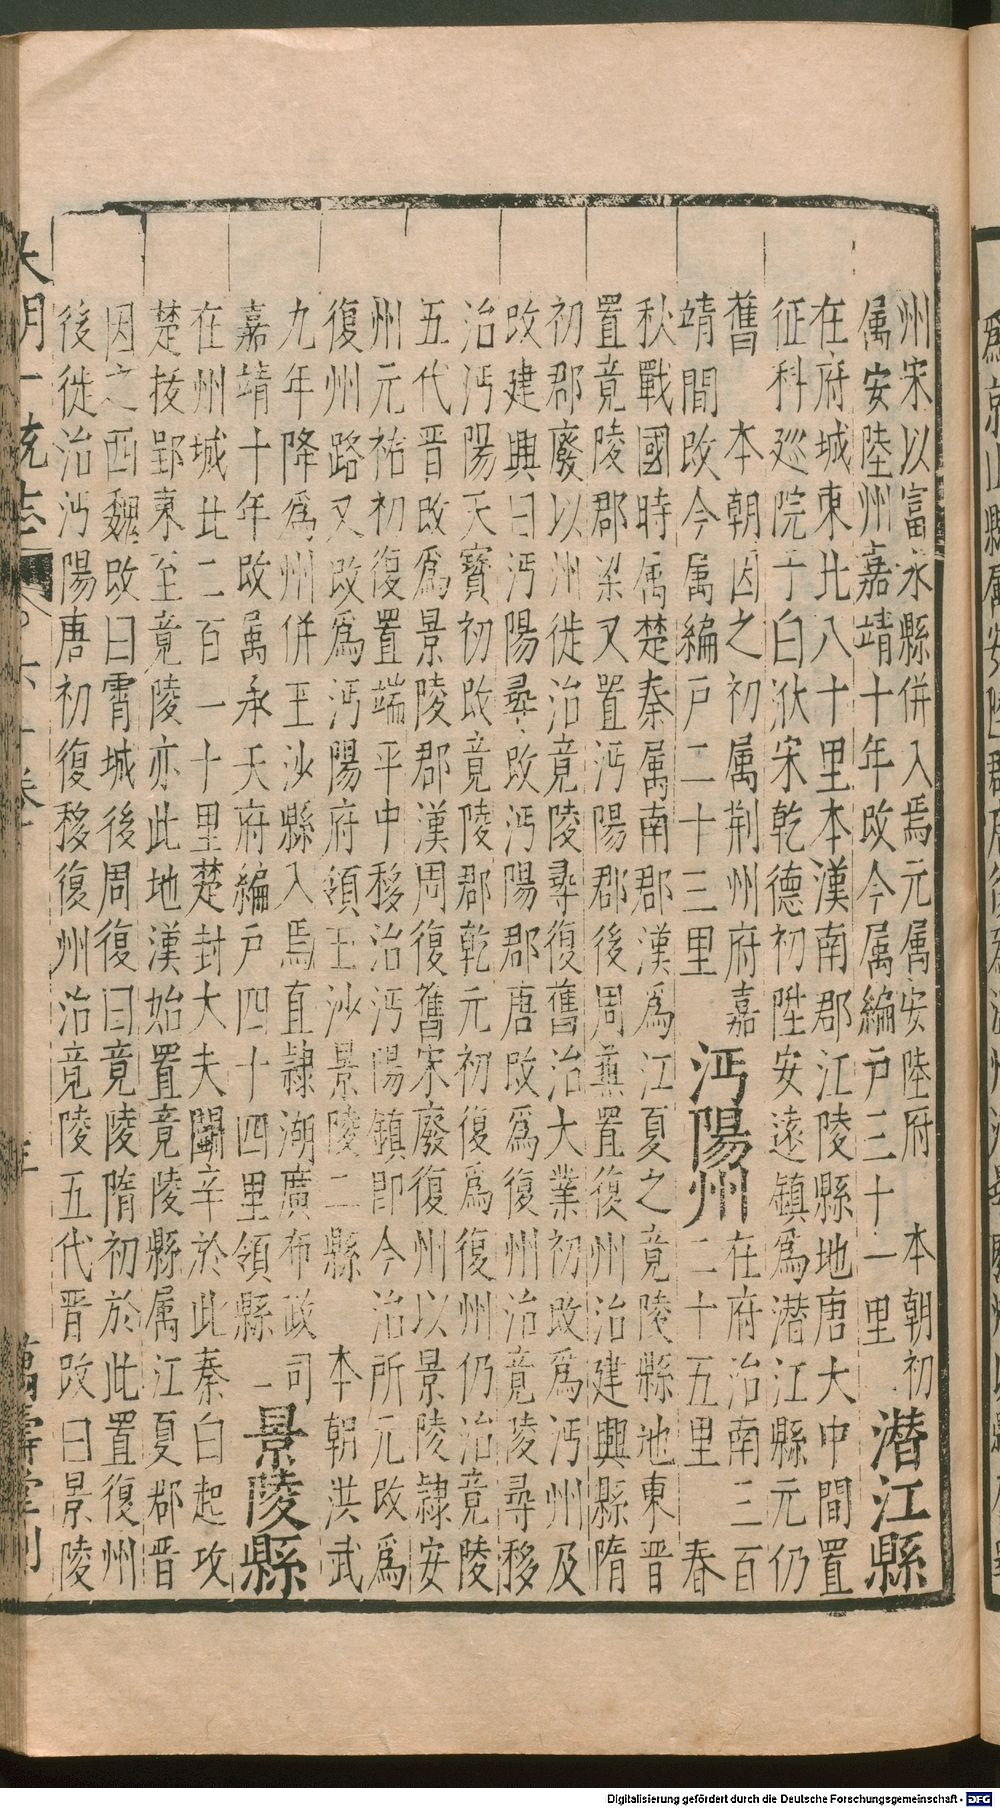 州宋以富永縣併入焉元属安陸府　本朝初
属安陸州嘉靖十年改今属編戶三十一里
潛江縣
在府城東北八十里本漢南郡江陵縣地唐大中間置
征科廵院于白洑宋乾德初陞安遠鎮為潛江縣元仍
舊　本朝因之初属荊州府嘉
靖間改今属編戶二十三里
沔陽州
在府治南三百
二十五里　春
秋戰國時属楚秦属南郡漢為江夏之竟陵縣地東晋
置竟陵郡梁又置沔陽郡後周兼置復州治建興縣隋
初郡廢以州徙治竟陵尋復舊治大業初改為沔州及
改建興曰沔陽尋改沔陽郡唐改為復州治竟陵尋移
治沔陽天寶初改竟陵郡乾元初復為復州仍治竟陵
五代晋改為景陵郡漢周復舊宋廢復州以景陵隷安
州元祐初復置端平中移治沔陽鎮即今治所元改為
復州路又改為沔陽府領玉沙景陵二縣　本朝洪武
九年降為州併玉沙縣入焉直隷湖廣布政司
嘉靖十年改属承天府編戶四十四里領縣一
景陵縣
在州城北二百一十里楚封大夫鬬辛於此秦白起攻
楚拔郢東至竟陵亦此地漢始置竟陵縣属江夏郡晋
因之西魏改曰霄城後周復曰竟陵隋初於此置復州
後徙治沔陽唐初復移復州治竟陵五代晋改曰景陵
大明一統志
萬壽堂刊
Digitalisierung gefördert durch die Deutsche Forschungsgemeinschaft - DFG